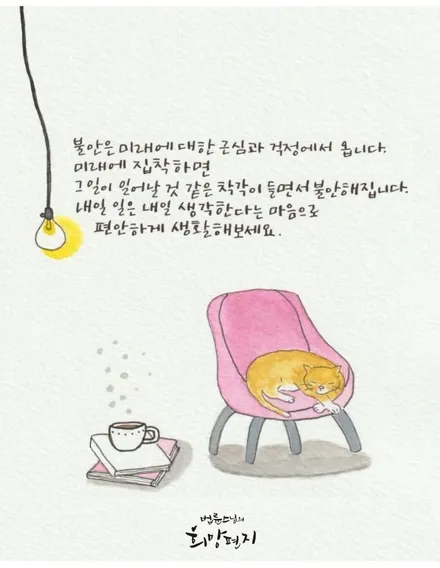 불안은 미래에 대한 근심과 걱정에서 옵니다.
미래에 집착하면
그 일이 일어날 것 같은 착각이 들면서 불안해집니다.
내일 일은 내일 생각한다는 마음으로
편안하게 생활해보세요.
법륜스님의
희망편지